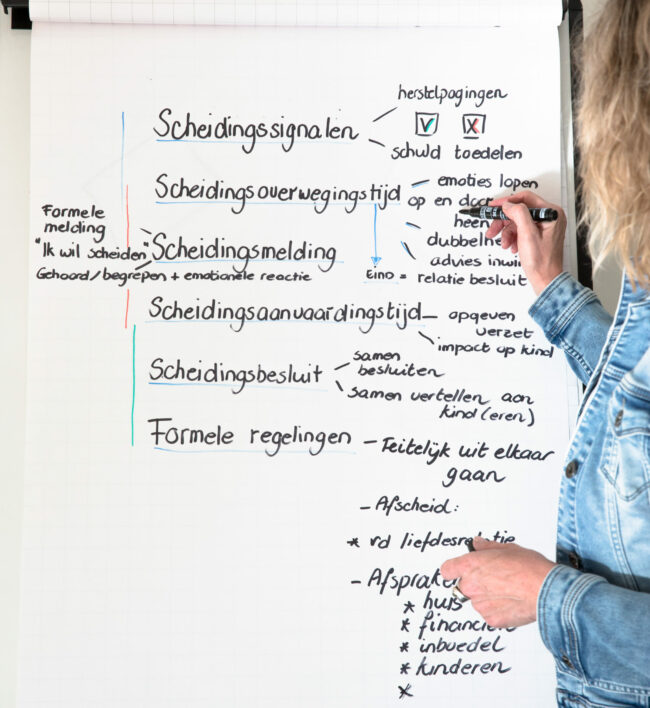 herstelpogingen
Scheidingssignalen
V X
schuld toedelen
Scheidingsoverwegingstijd - emoties lopen
op en door
heen
dubbelhe
advies inwi
Eind = relatie besluit
Formele
melding
"Ik wil scheiden"
Scheidingsmelding
Gehoord/begrepen + emotionele reactie
Scheidingsaanvaardingstijd - opgeven
verzet
impact op kind
samen
besluiten
Scheidingsbesluit
samen vertellen aan
kind(eren)
Formele regelingen - Feitelijk uit elkaar
gaan
- Afscheid:
* vd liefdesrelatie
- Afspraken
* huis
* financiën
* inboedel
* kinderen
*